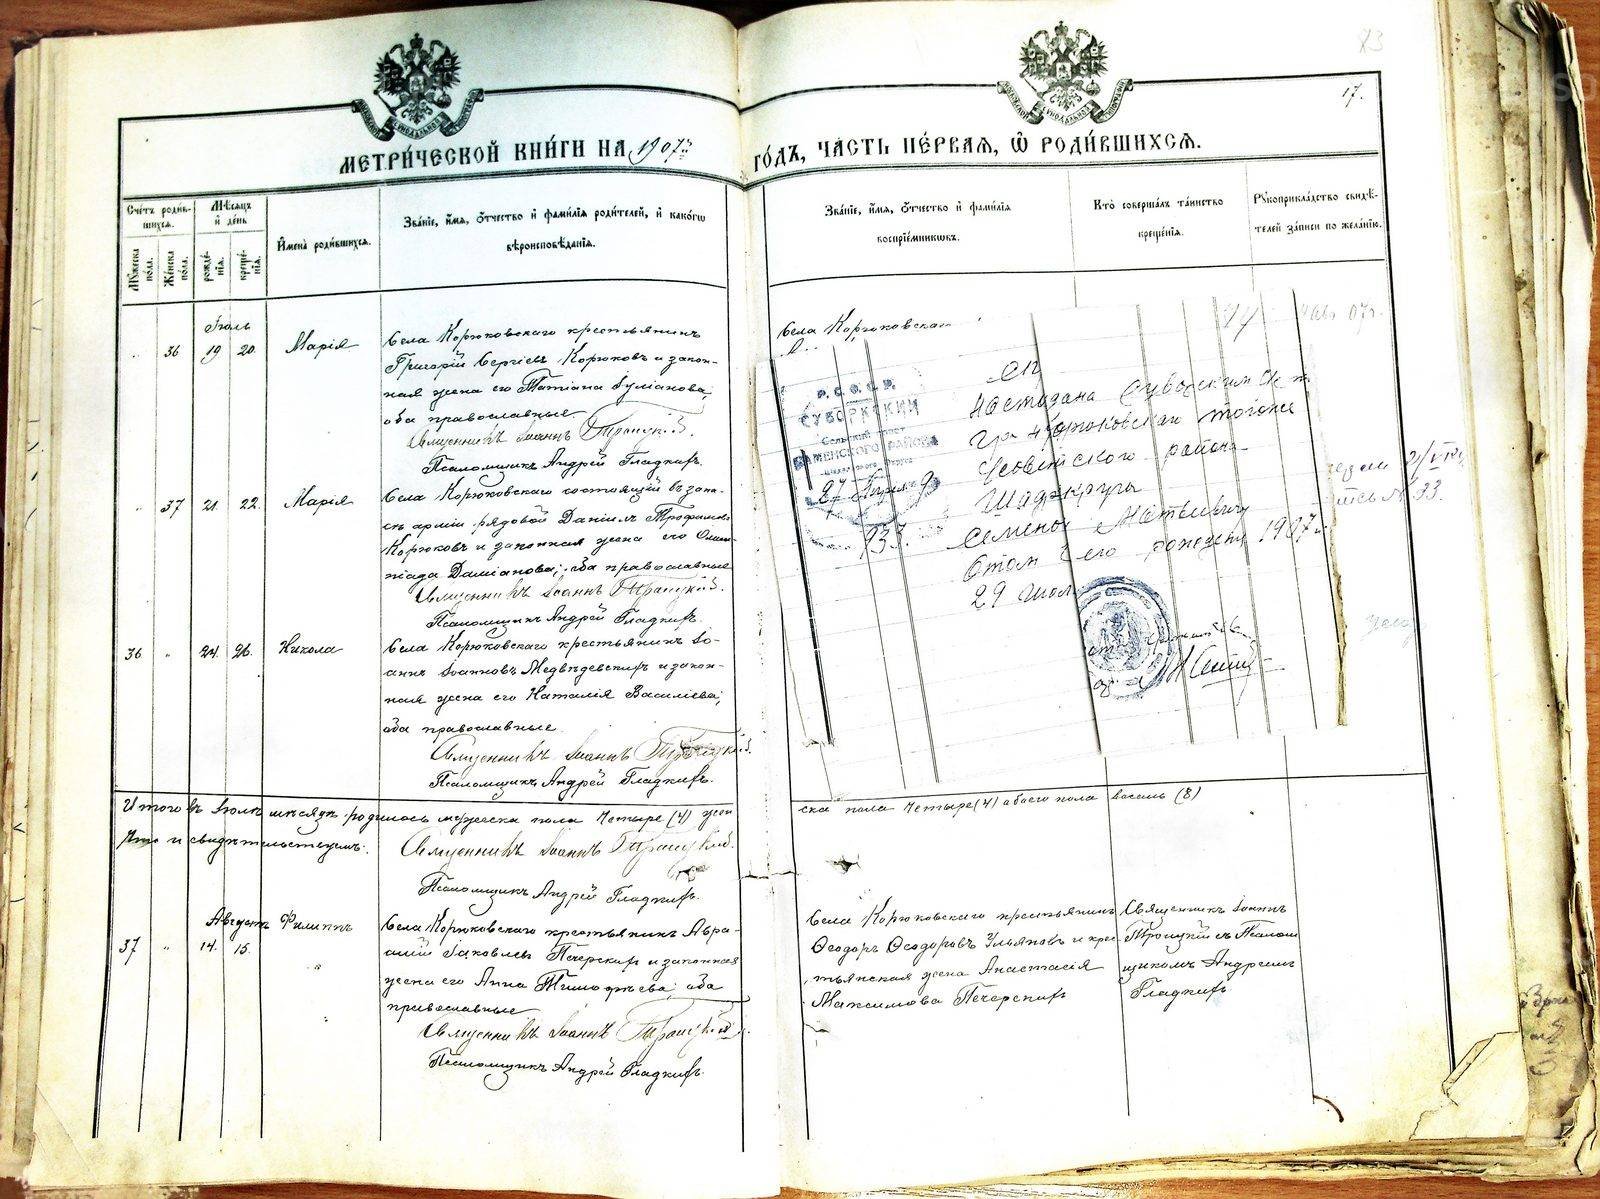 83
17.
МЕТРИ́ЧЕСКОЙ КНИ́ГИ НА 1907й ГО́ДЪ, ЧА́СТЬ ПЕ́РВАЯ, Ѿ РОДИ́ВШИХСЯ.
Сче́тъ роди́в-
шихся.
Мѣ́сяцъ
и҆ де́нь
Мꙋ́жеска по́ла.
Же́нска по́ла.
рожде́-
нїя.
креще́-
нїя.
И҆мена̀ роди́вшихся.
Зва́нїе, и҆́мя, ѻ҆́тчество и҆ фами́лїя роди́телей, и҆ како́гѡ
вѣроисповѣ́данїя.
Зва́нїе, и҆́мя, ѻ҆́тчество и҆ фами́лїя
воспрїе́мникѡвъ.
Кто̀ соверша́лъ та́инство
креще́нїя.
Рꙋкоприкла́дство свидѣ́-
телей за́писи по жела́нїю.
Іюль
„ 36 19 20. Марія
Села Корюковскаго крестьянинъ
Григорій Сергіевъ Корюковъ и закон-
ная жена его Татіана Іуліанова;
оба православные
Священникъ Іоаннъ Троицкій.
Псаломщикъ Андрей Гладкихъ.
„ 37 21. 22. Марія
Села Корюковскаго состоящій въ запа-
съ арміи рядовой Даніилъ Трофимовъ
Корюковъ и законная жена его Олим-
піада Даміанова; оба православные
Священникъ Іоаннъ Троицкій.
Псаломщикъ Андрей Гладкихъ.
36 „ 24. 26. Никола
Села Корюковскаго крестьянинъ Іо-
аннъ Іоанновъ Медвѣдевскихъ и закон-
ная жена его Наталія Василіева;
оба православные
Священникъ Іоаннъ Троицкій.
Псаломщикъ Андрей Гладкихъ.
Итого въ Іюлѣ мѣсяцѣ родилось мужеска пола четыре (4) жен
ска пола четыре (4) обоего пола восемь (8)
Что и свидѣтельствуемъ:
Священникъ Іоаннъ Троицкій.
Псаломщикъ Андрей Гладкихъ.
Августъ
37 „ 14. 15. Филиппъ
Села Корюковскаго крестьянинъ Авра-
амій Іаковлевъ Печерскихъ и законная
жена его Анна Тимофѣева; оба
православные
Священникъ Іоаннъ Троицкій.
Псаломщикъ Андрей Гладкихъ.
Села Корюковскаго крестьянинъ
Ѳеодоръ Ѳеодоровъ Ульяновъ и крес-
тьянская жена Анастасія
Максимова Печерскихъ
Священникъ Іоаннъ
Троицкій съ Псалом
щикомъ Андреемъ
Гладкихъ
Села Корюковскаго
Р.С.Ф.С.Р.
СУБОРКСКИЙ
Сельский Совет
КАМЕНСКОГО РАЙОНА
27 Апреля
193
района
Семеном Матвеевичу
отом его рождения 1907
29 июл